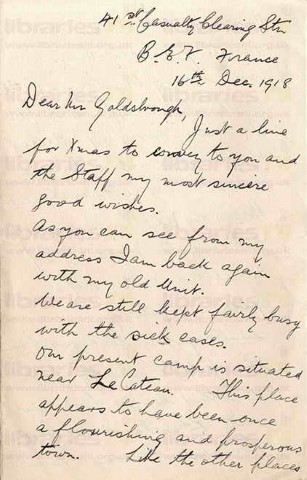 41st Casualty Clearing Stn
B.E.F. France
16th Dec. 1918
Dear Mr Goldsbrough,
Just a line
for Xmas to convey to you and
the Staff my most sincere
good wishes.
As you can see from my
address I am back again
with my old Unit.
We are still kept fairly busy
with the sick cases.
Our present camp is situated
near Le Cateau. This place
appears to have been once
a flourishing and prosperous
town. Like the other places